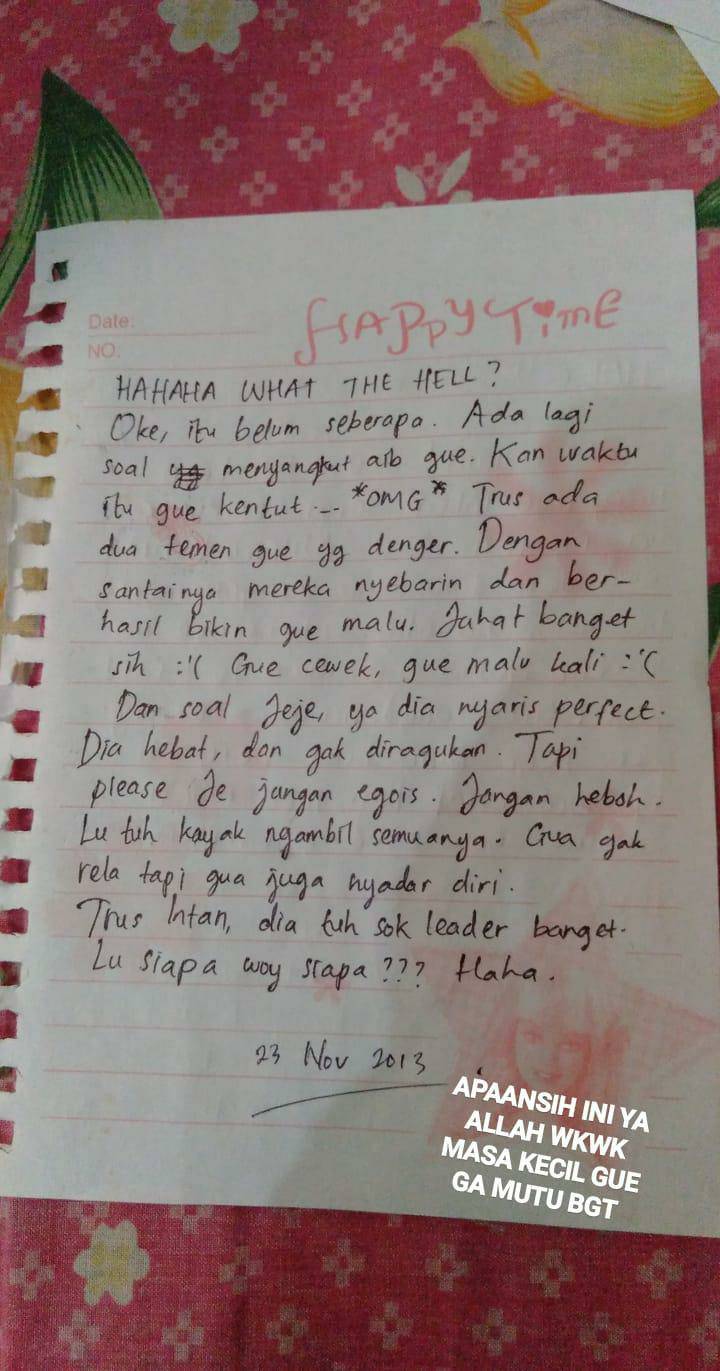 Date:
HAPPY TIME
NO.
HAHAHA WHAT THE HELL?
Oke, itu belum seberapa. Ada lagi
soal yg menyangkut aib gue. Kan waktu
itu gue kentut... *OMG* Trus ada
dua temen gue yg denger. Dengan
santainya mereka nyebarin dan ber-
hasil bikin gue malu. Jahat banget
sih :'( Gue cewek, gue malu kali :'(
Dan soal Jeje, ya dia nyaris perfect.
Dia hebat, dan gak diragukan. Tapi
please Je jangan egois. Jangan heboh.
Lu tuh kayak ngambil semuanya. Gua gak
rela tapi gua juga nyadar diri.
Trus Intan, dia tuh sok leader banget.
Lu siapa woy siapa??? Haha.
23 Nov 2013
APAANSIH INI YA
ALLAH WKWK
MASA KECIL GUE
GA MUTU BGT